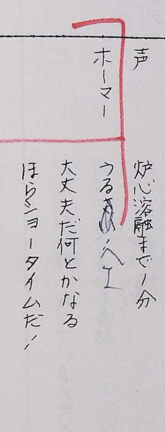 声　炉心溶融まで1分
ホーマー　うるせへェ
大丈夫だ何とかなる
ほらショータイムだ！